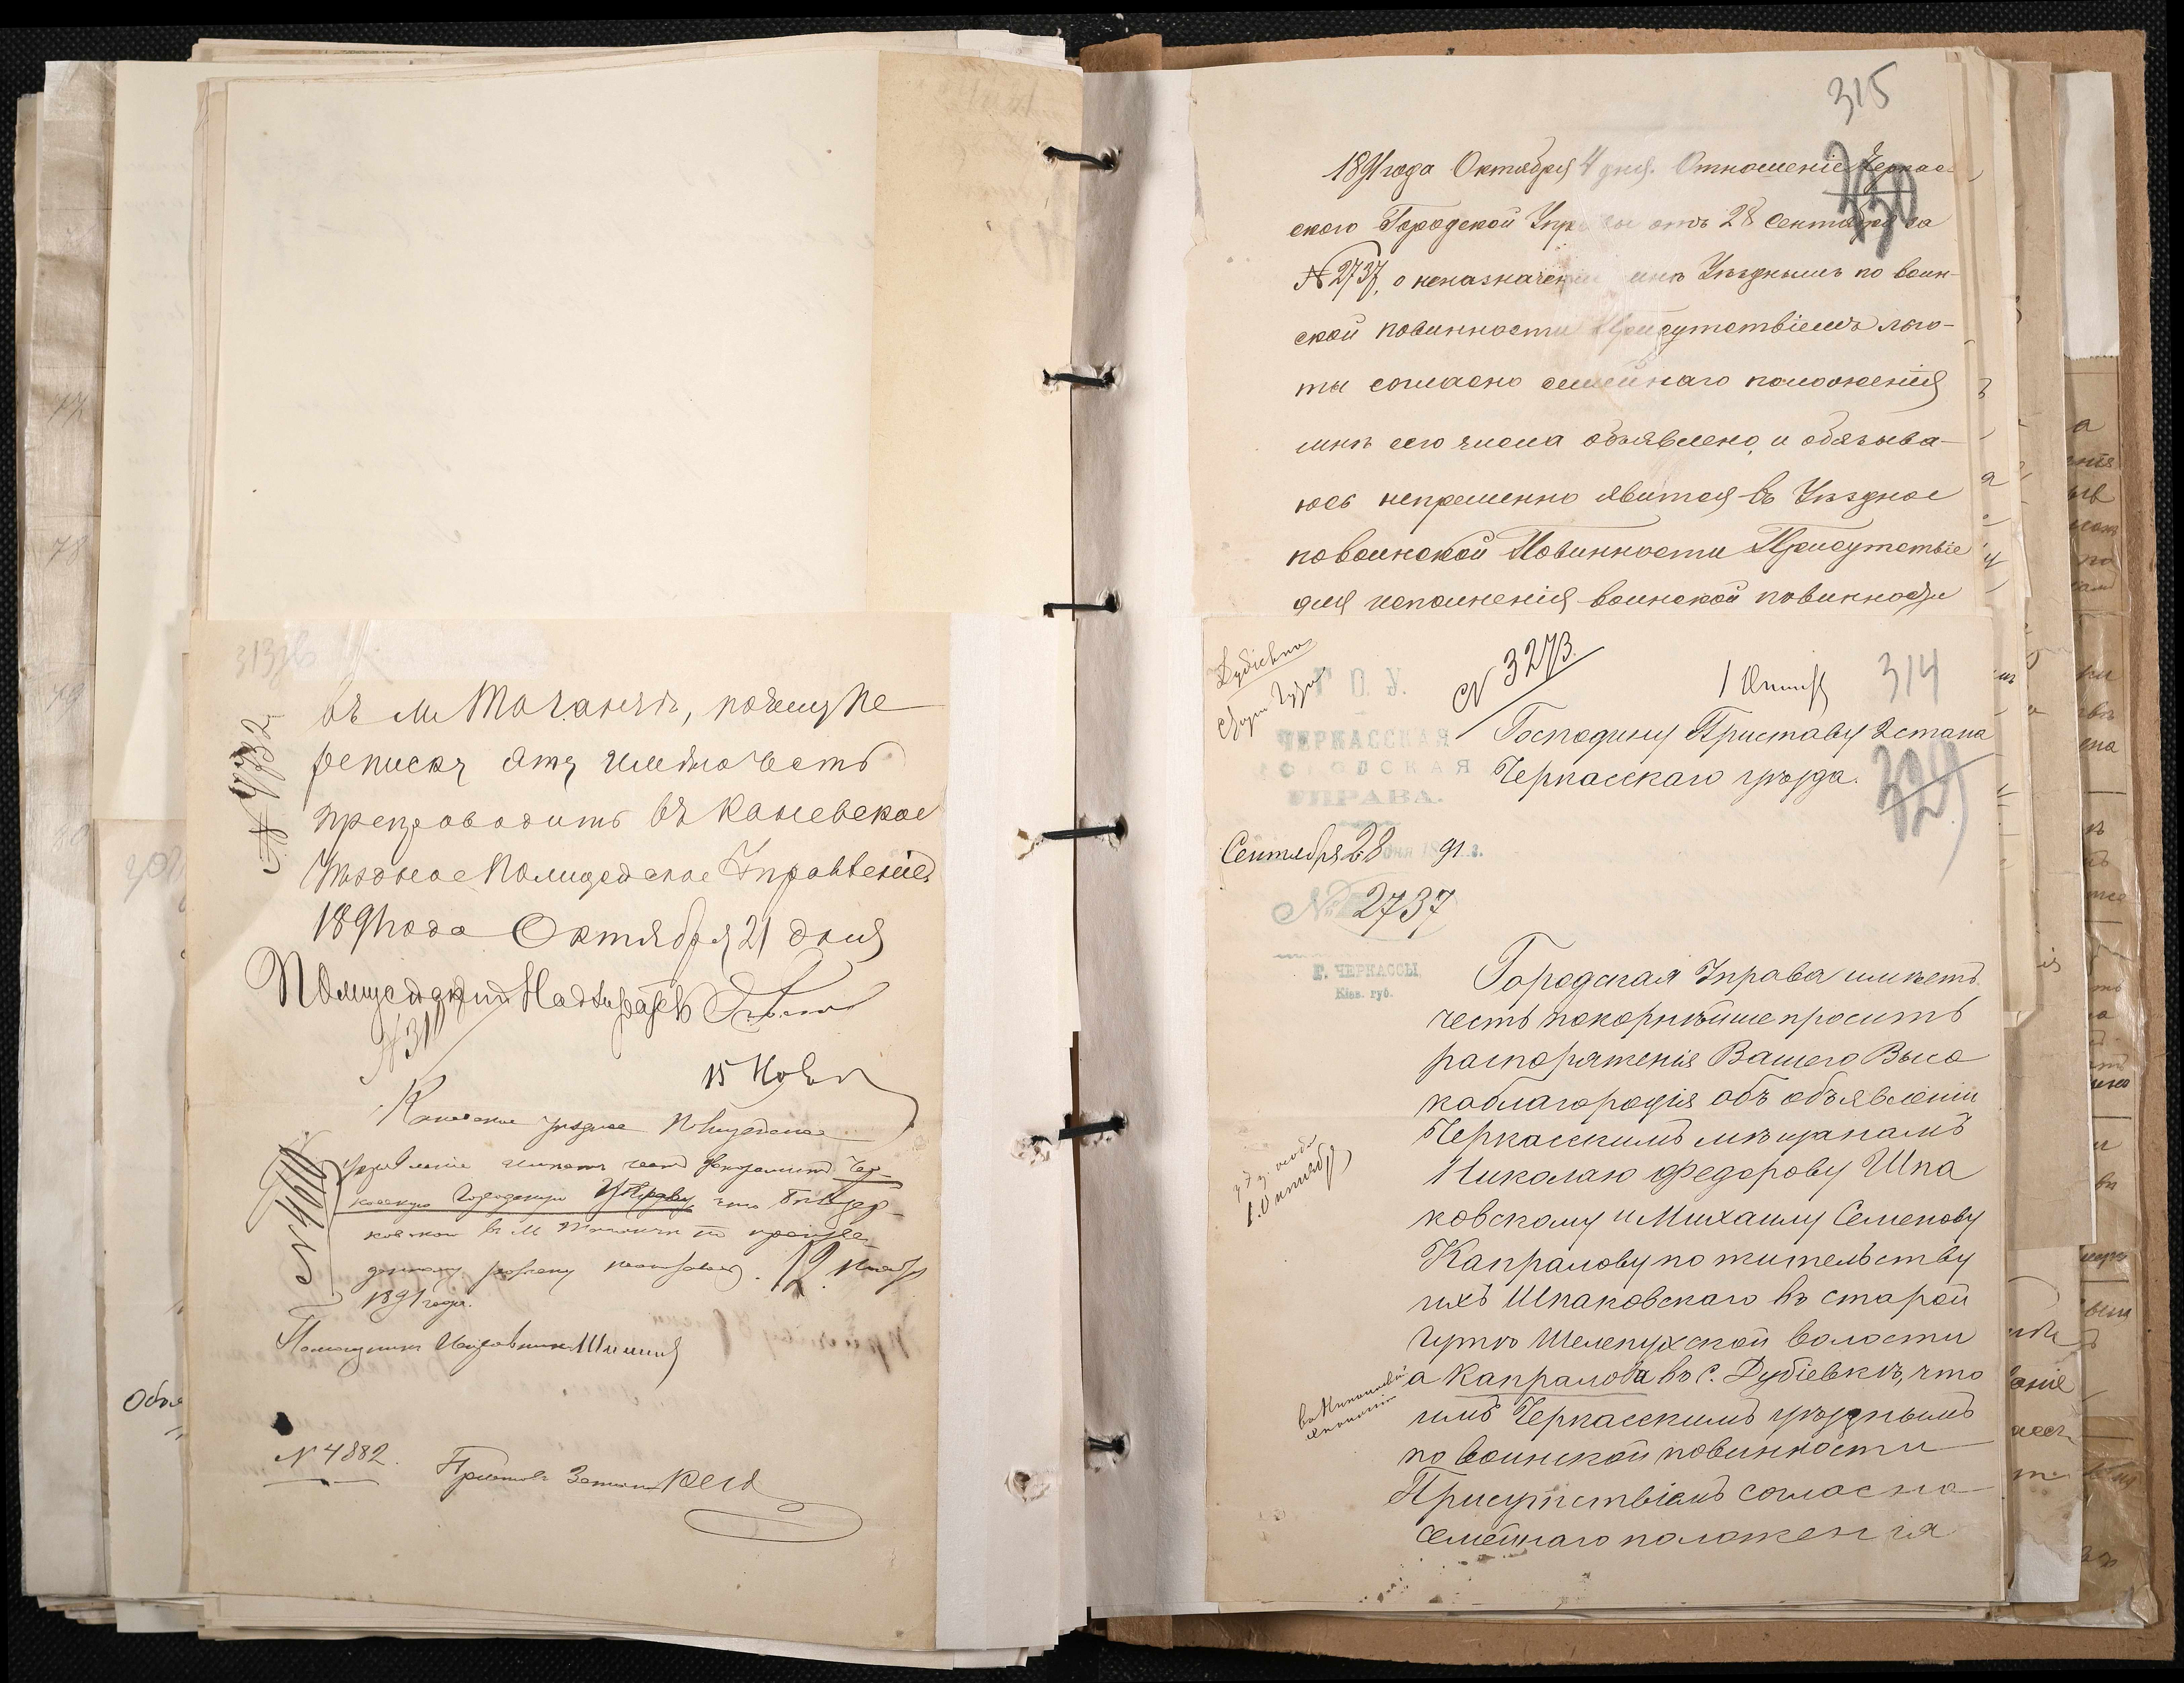 313 об
въ м. Таганчѣ, почему пе
реписку эту имѣю честь
препроводить въ Каневское
Уѣздное Полицейское Управленіе
1891 года Октября 21 дня
Полицейскій Надзиратель
№ 311
№ 4732
15 Нояб
Каневское уѣздное Полицейское
Управленіе имѣетъ честь
Чер-
касскую Городскую Управу, что
въ м. Таганчѣ по произве-
денному розыску. 12 Ноября
1891 года.
Помощникъ Исправника
№ 4882.
Приставъ 3 стана
315
330
1891 года Октября 4 дня. Отношеніе Черкас-
ского Городской Управы отъ 28 Сентября за
№ 2737, о неназначеніи мнѣ Уѣзднымъ по воин-
ской повинности Присутствіемъ льго-
ты согласно семейнаго положенія
мнѣ сего числа объявлено, и обязыва-
юсь непременно явится въ Уѣздное
по воинской Повинности Присутствіе
для исполненія воинской повинности
Дубіевка
Стар
Г.О.У.
ЧЕРКАССКАЯ
ГОРОДСКАЯ
УПРАВА.
№ 3273.
1 Октяб
314
329
Господину Приставу 2 стана
Черкасскаго уѣзда.
Сентября 28 дня 1891 г.
№ 2737
Г. ЧЕРКАССЫ,
Кіев. губ.
Городская Управа имѣетъ
честь покорнѣйше просить
распоряженія Вашего Высо
коблагородія объ объявленіи
Черкасскимъ мѣщанамъ
Николаю Федорову Шпа
ковскому и Михаилу Семенову
Капралову по жительству
ихъ Шпаковскаго въ старой
гутѣ Шелепухской волости
а Капралова въ с. Дубіевкѣ, что
имъ Черкасскимъ уѣзднымъ
по воинской повинности
Присутствіемъ согласно
семейнаго положенія
1. Октября